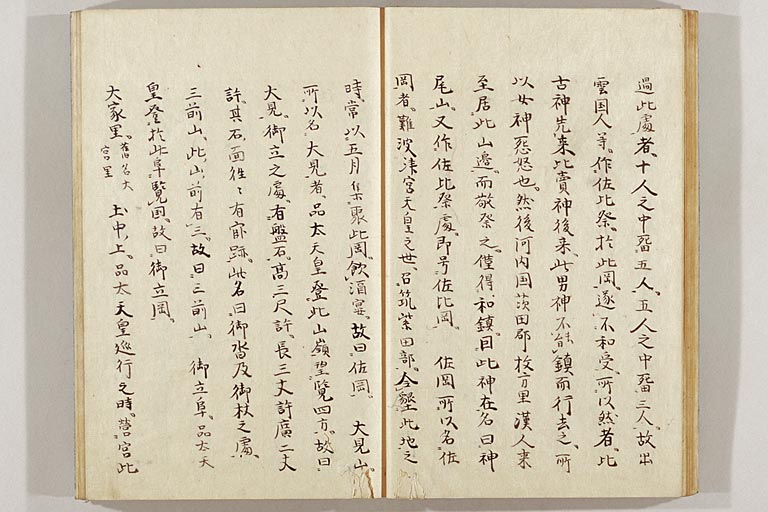 過此處者、十人之中留五人、五人之中留三人、故出
雲国人等、作佐比祭於此岡、遂不和受、所以然者、比
古神先来、比賣神後来、此男神不能鎮而行去之、所
以女神怨怒也、然後河内国茨田郡枚方里漢人来
至、居此山邊、而敬祭之、僅得和鎮、因此神在、名曰神
尾山、又作佐比祭處、即号佐比岡、　佐岡所以名佐
岡者、難波津宮天皇之世、召筑紫田部、令墾此地之
時、常以五月集聚此岡、飲酒宴、故曰佐岡、　大見山、
所以名大見者、品太天皇登此山嶺、望覧四方、故曰
大見、御立之處、有盤石、高三尺許、長三丈許、廣二丈
許、其石面、往々有窪跡、此名曰御沓及御杖之處、
三前山、此山前有三、故曰三前山、　御立阜、品太天
皇登於此阜覧国、故曰御立岡、
大家里、舊名大宮里　土中上、品太天皇巡行之時、営宮此